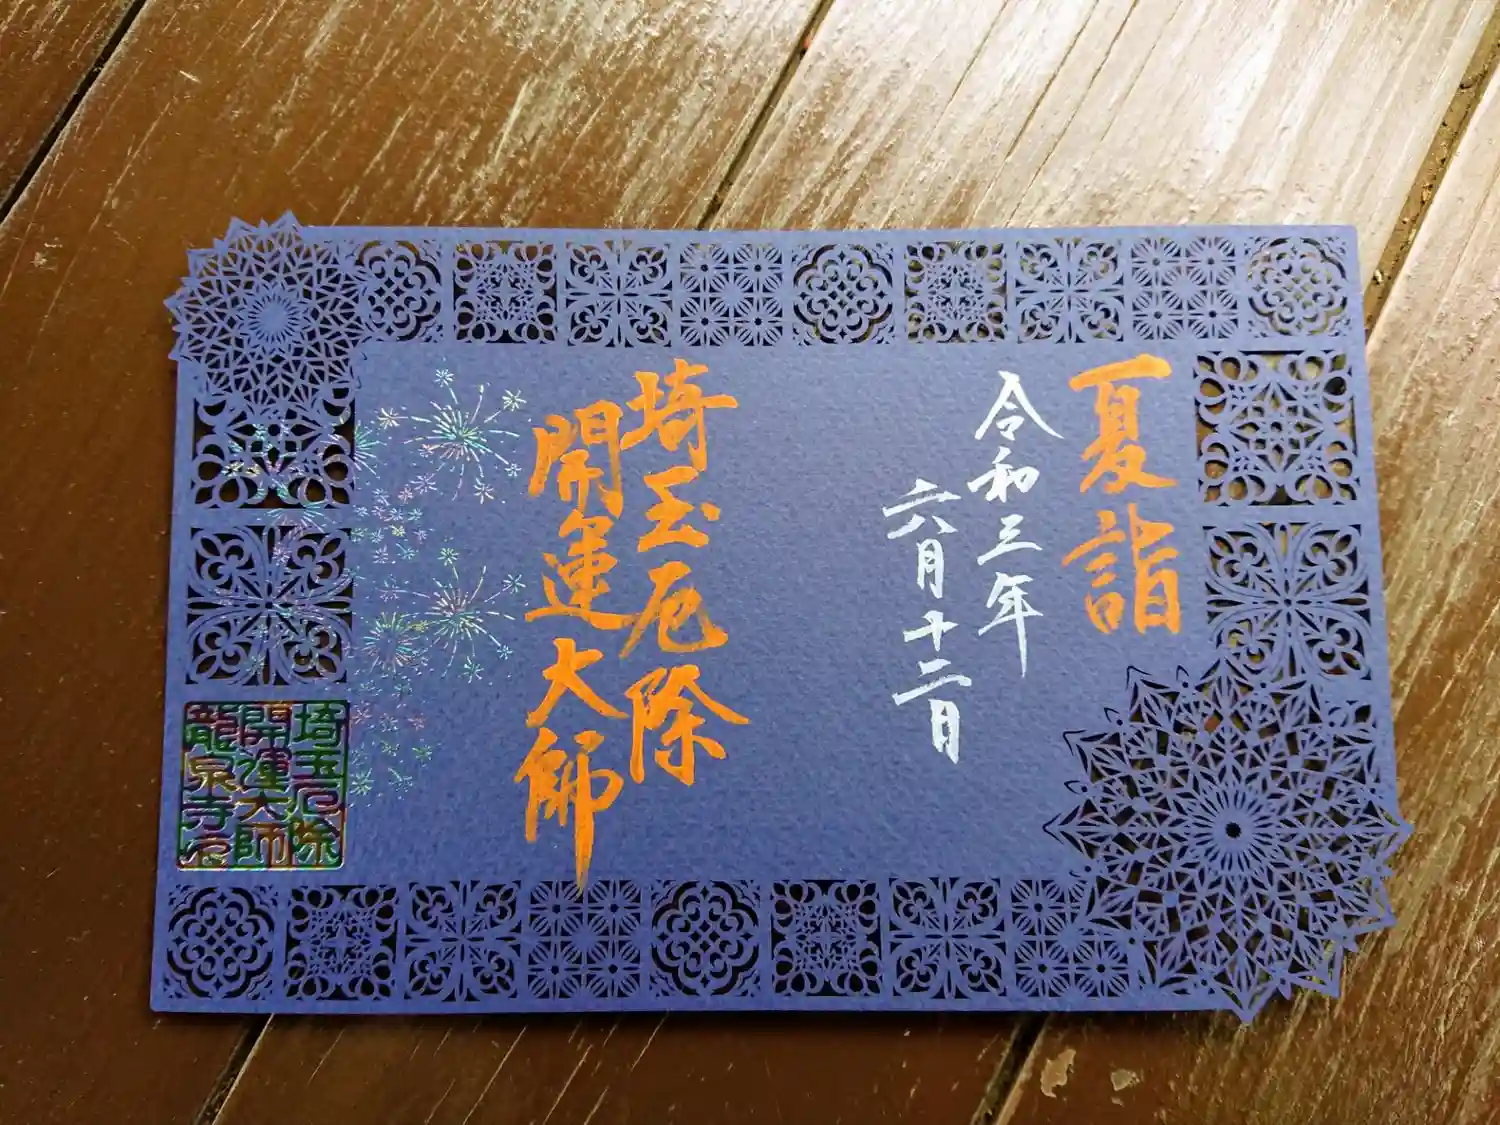 夏詣
令和三年
六月十二日
埼玉厄除
開運大師
埼玉厄除
開運大師
龍泉寺